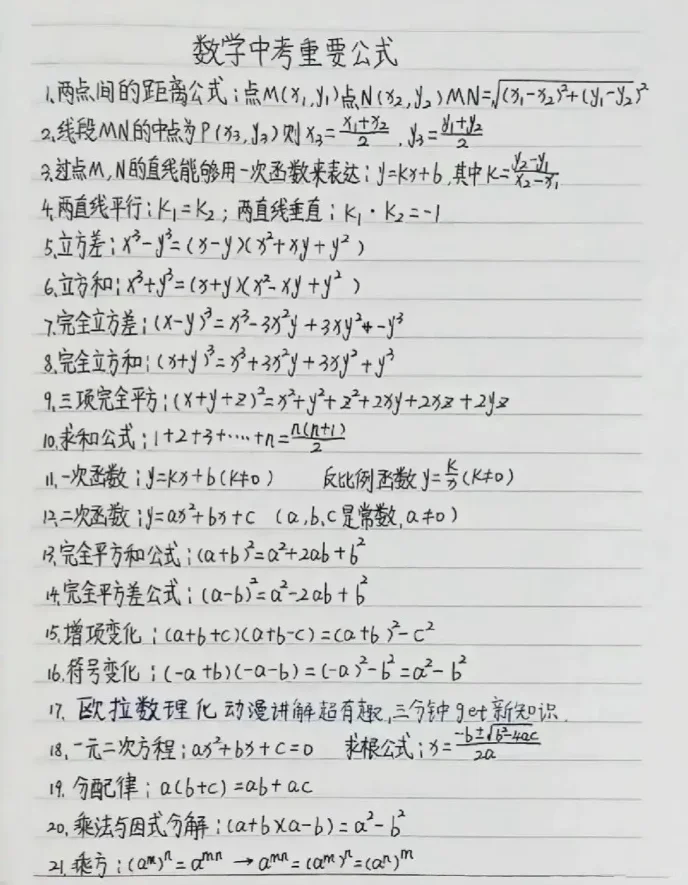 数学中考重要公式
1.两点间的距离公式：点M(x₁,y₁)点N(x₂,y₂)MN=√(x₁-x₂)²+(y₁-y₂)²
2.线段MN的中点为P(x₃,y₃)则x₃=(x₁+x₂)/2，y₃=(y₁+y₂)/2
3.过点M,N的直线能够用一次函数来表达：y=kx+b,其中K=(y₂-y₁)/(x₂-x₁)
4.两直线平行：K₁=K₂；两直线垂直：K₁·K₂=-1
5.立方差：x³-y³=(x-y)(x²+xy+y²)
6.立方和：x³+y³=(x+y)(x²-xy+y²)
7.完全立方差：(x-y)³=x³-3x²y+3xy²+-y³
8.完全立方和：(x+y)³=x³+3x²y+3xy²+y³
9.三项完全平方：(x+y+z)²=x²+y²+z²+2xy+2xz+2yz
10.求和公式：1+2+3+……+n=n(n+1)/2
11.一次函数：y=kx+b(k≠0) 反比例函数y=k/x(k≠0)
12.二次函数：y=ax²+bx+c (a,b,c是常数,a≠0)
13.完全平方和公式：(a+b)²=a²+2ab+b²
14.完全平方差公式：(a-b)²=a²-2ab+b²
15.增项变化：(a+b+c)(a+b-c)=(a+b)²-c²
16.符号变化：(-a+b)(-a-b)=(-a)²-b²=a²-b²
17. 欧拉数理化动漫讲解超有趣,三分钟get新知识.
18.一元二次方程：ax²+bx+c=0 求根公式：x=(-b±√b²-4ac)/2a
19.分配律：a(b+c)=ab+ac
20.乘法与因式分解：(a+b)(a-b)=a²-b²
21.乘方：(aᵐ)ⁿ=aᵐⁿ→aᵐⁿ=(aᵐ)ⁿ=(aⁿ)ᵐ